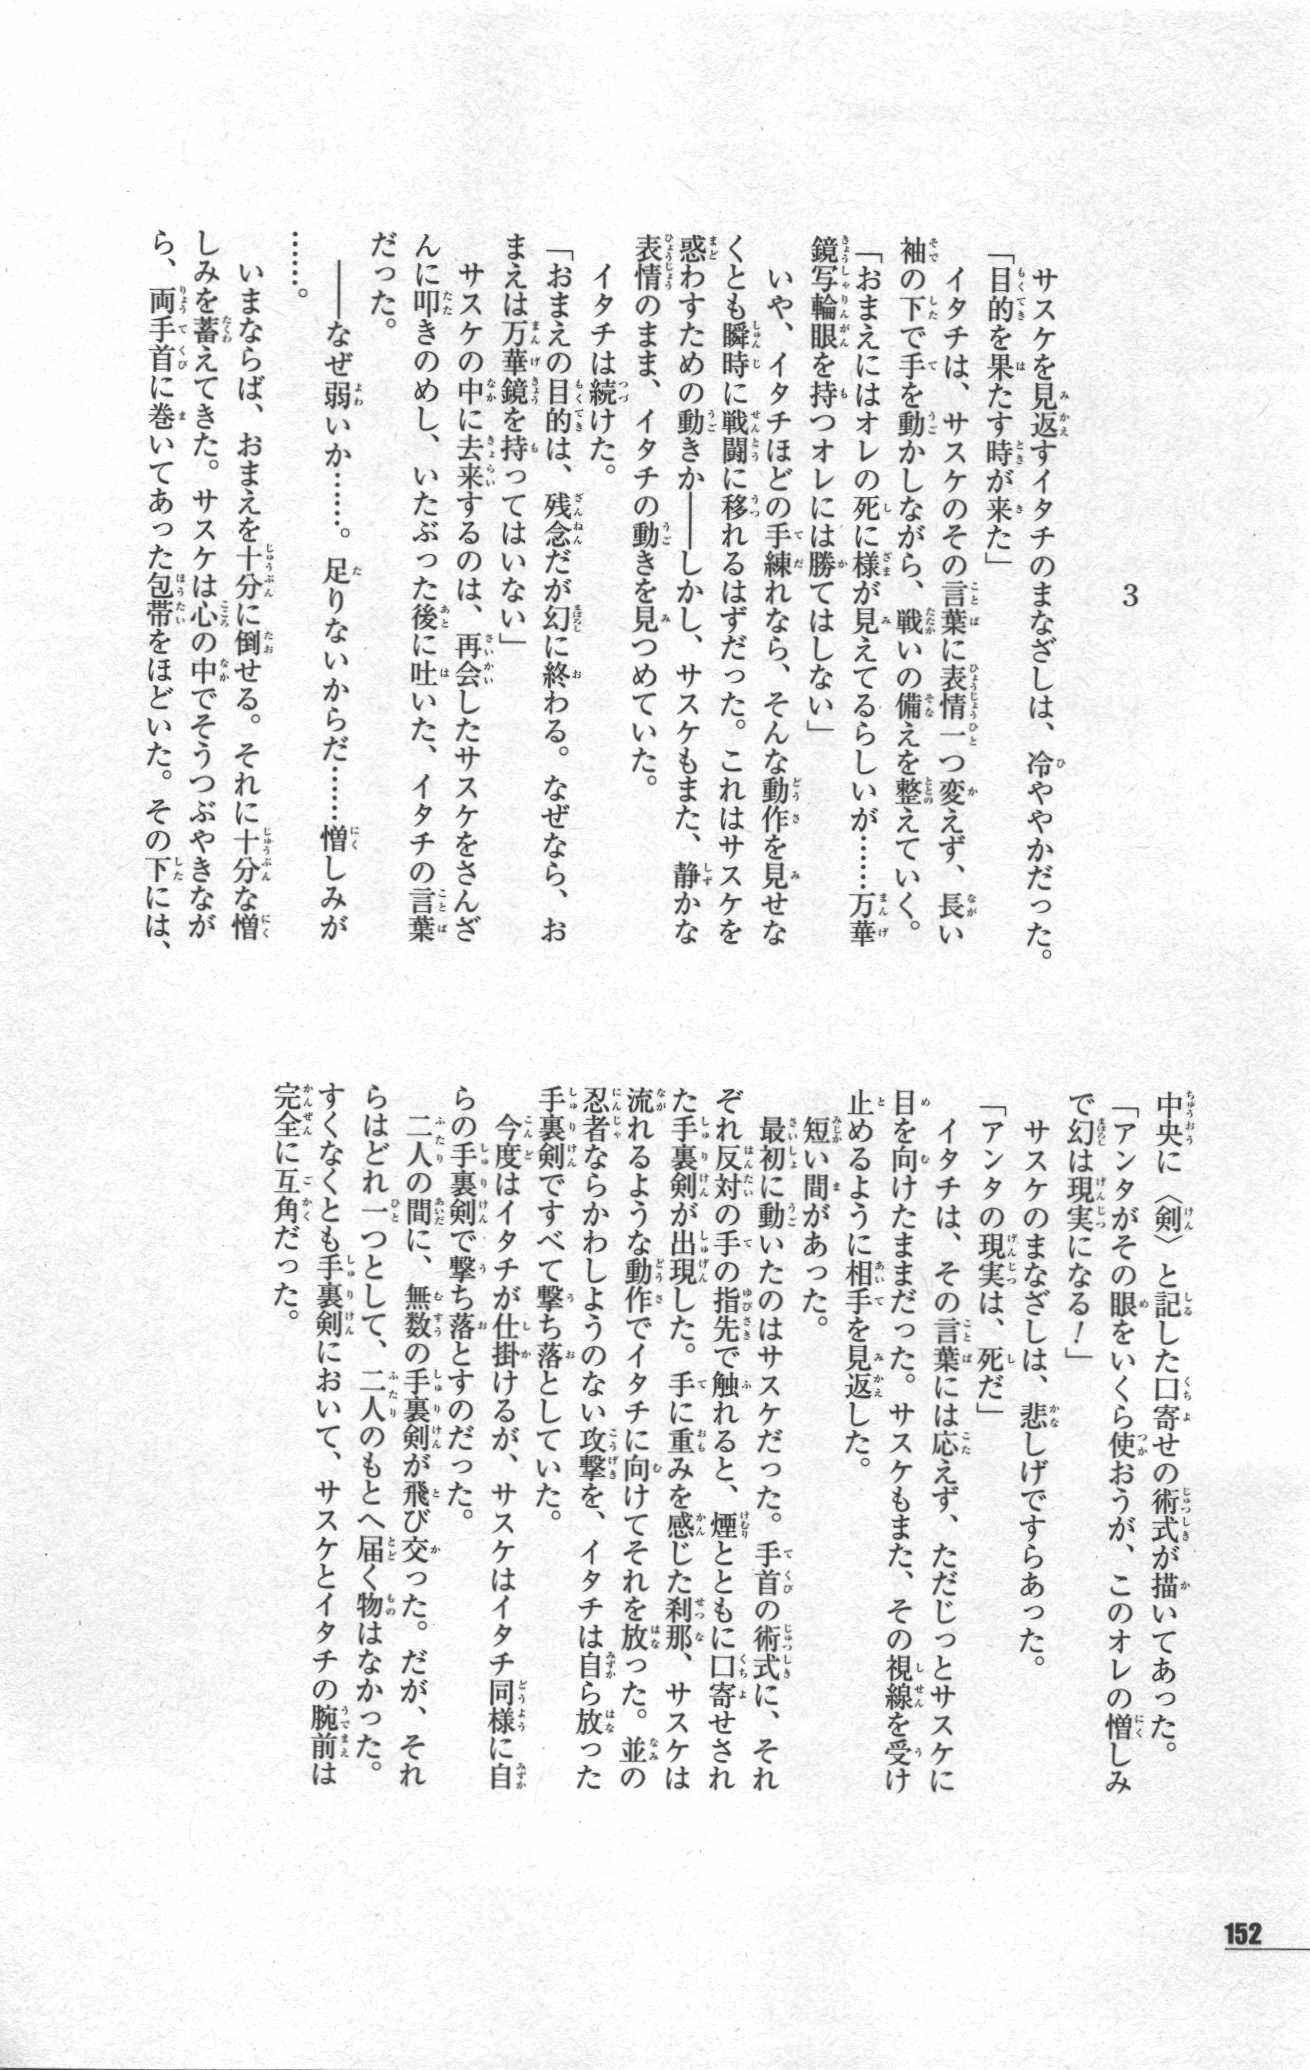 3
サスケを見返すイタチのまなざしは、冷ややかだった。
「目的を果たす時が来た」
イタチは、サスケのその言葉に表情一つ変えず、長い
袖の下で手を動かしながら、戦いの備えを整えていく。
「おまえにはオレの死に様が見えてるらしいが……万華
鏡写輪眼を持つオレには勝てはしない」
いや、イタチほどの手練れなら、そんな動作を見せな
くとも瞬時に戦闘に移れるはずだった。これはサスケを
惑わすための動きか――しかし、サスケもまた、静かな
表情のまま、イタチの動きを見つめていた。
イタチは続けた。
「おまえの目的は、残念だが幻に終わる。なぜなら、お
まえは万華鏡を持ってはいない」
サスケの中に去来するのは、再会したサスケをさんざ
んに叩きのめし、いたぶった後に吐いた、イタチの言葉
だった。
――なぜ弱いか……。足りないからだ……憎しみが
……。
いまならば、おまえを十分に倒せる。それに十分な憎
しみを蓄えてきた。サスケは心の中でそうつぶやきなが
ら、両手首に巻いてあった包帯をほどいた。その下には、
中央に〈剣〉と記した口寄せの術式が描いてあった。
「アンタがその眼をいくら使おうが、このオレの憎しみ
で幻は現実になる！」
サスケのまなざしは、悲しげですらあった。
「アンタの現実は、死だ」
イタチは、その言葉には応えず、ただじっとサスケに
目を向けたままだった。サスケもまた、その視線を受け
止めるように相手を見返した。
短い間があった。
最初に動いたのはサスケだった。手首の術式に、それ
ぞれ反対の手の指先で触れると、煙とともに口寄せされ
た手裏剣が出現した。手に重みを感じた刹那、サスケは
流れるような動作でイタチに向けてそれを放った。並の
忍者ならかわしようのない攻撃を、イタチは自ら放った
手裏剣ですべて撃ち落としていた。
今度はイタチが仕掛けるが、サスケはイタチ同様に自
らの手裏剣で撃ち落とすのだった。
二人の間に、無数の手裏剣が飛び交った。だが、それ
らはどれ一つとして、二人のもとへ届く物はなかった。
すくなくとも手裏剣において、サスケとイタチの腕前は
完全に互角だった。
152